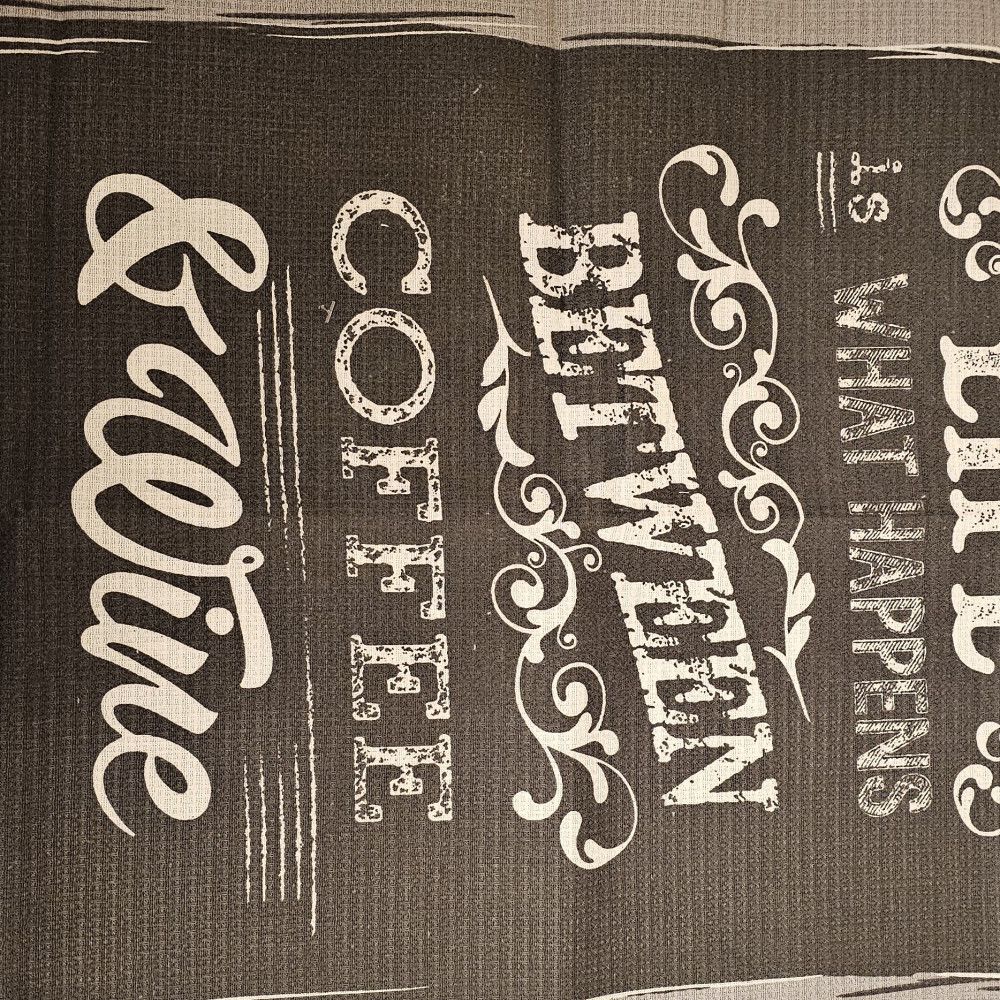 LIFE
is WHAT HAPPENS
BETWEEN
COFFEE
& Wine